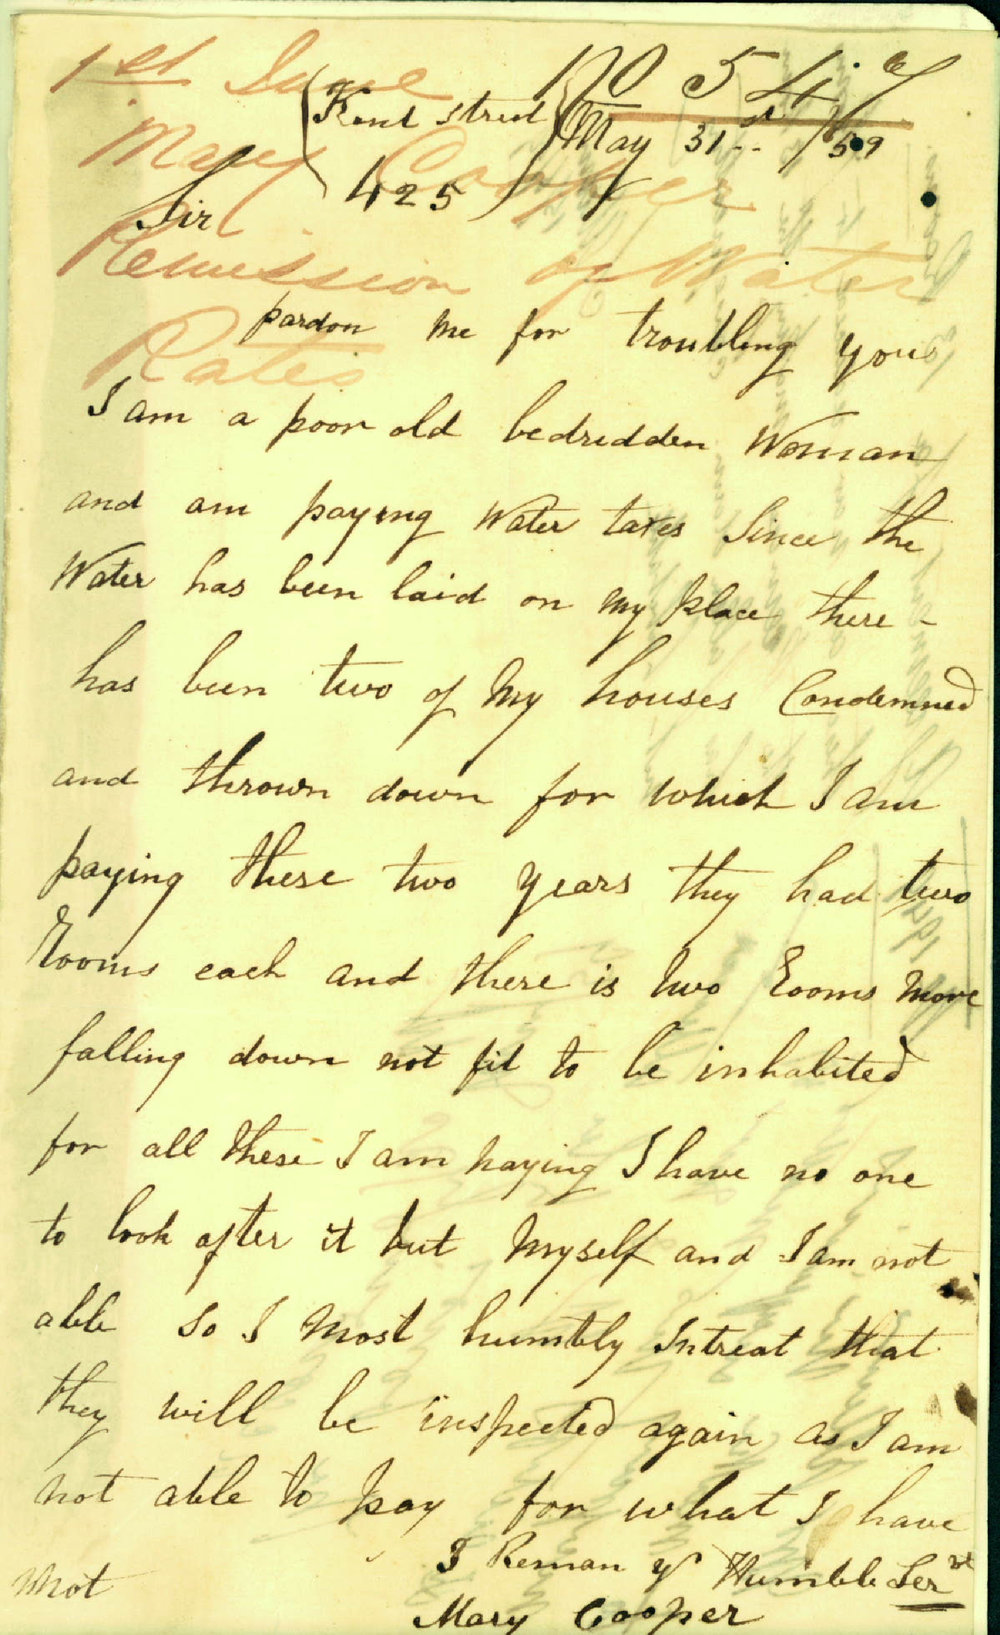 1st June No 547
Kent street May 31st /59
Mary Cooper
425
Sir
Remission of Water
pardon me for troubling you
Rates
I am a poor old bedridden Woman
and am paying Water taxes Since the
Water has been laid on my place there -
has been two of My houses Condemned
and thrown down for which I am
paying these two years they had two
Rooms each and there is two Rooms More
falling down not fit to be inhabited
for all these I am paying I have no one
to look after it but Myself and I am not
able So I Most humbly Intreat that
they will be inspected again as I am
not able to pay for what I have
not I Reman yr Humble Servt
Mary Cooper